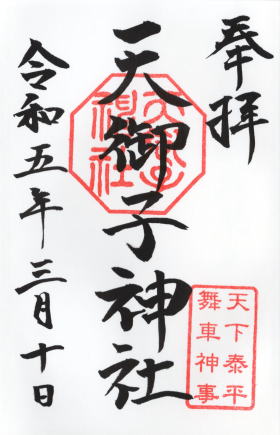 奉拝
天御子神社
令和五年三月十日
天下泰平
舞車神事